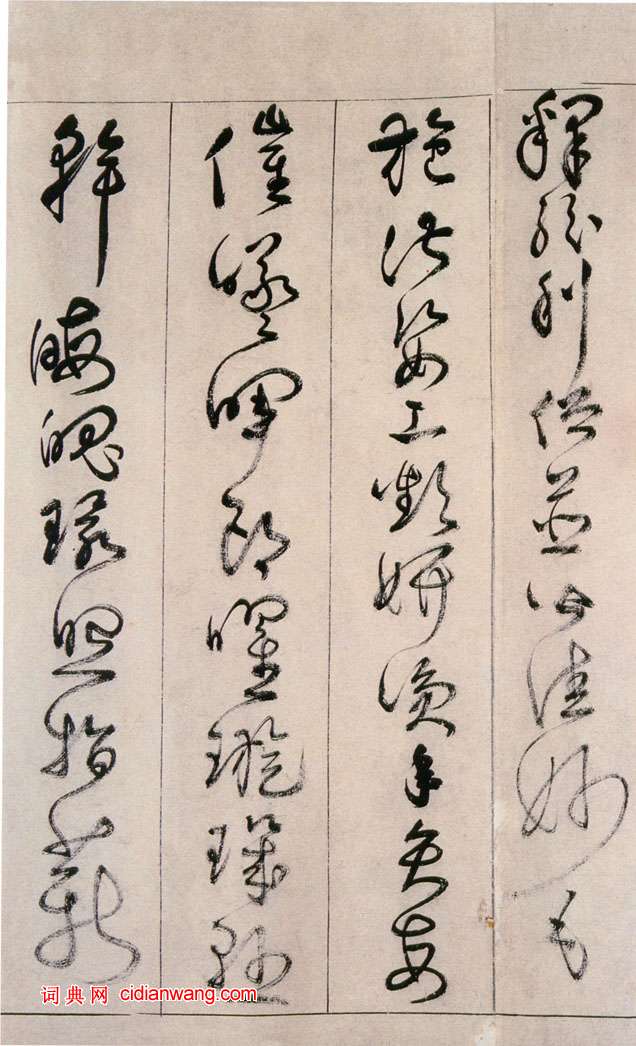 釋紛利俗並皆佳妙毛
施淑姿工顰妍笑年矢每
催曦暉朗曜璇璣懸
斡晦魄環照指薪
词典网 cidianwang.com